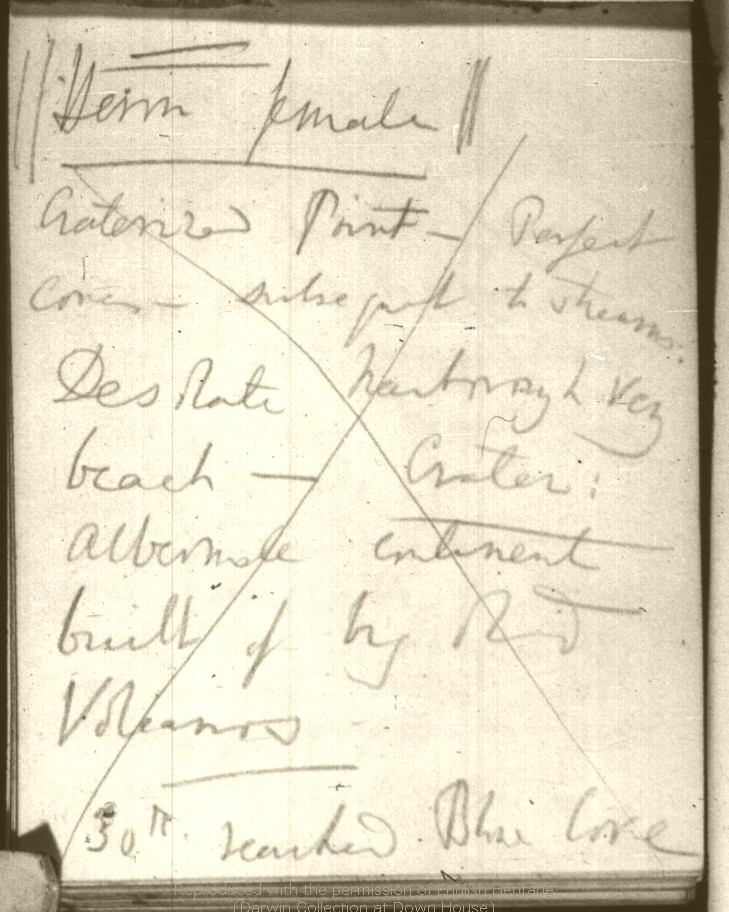 female
Craterized Point — Perfect
cones — subsequent to streams:
Desolate Narborough Very
black — Crater:
Albermale continent
built of big
Volcanos
30th reached Blue Cove
Reproduced with the permission of English Heritage
(Darwin Collection at Down House)